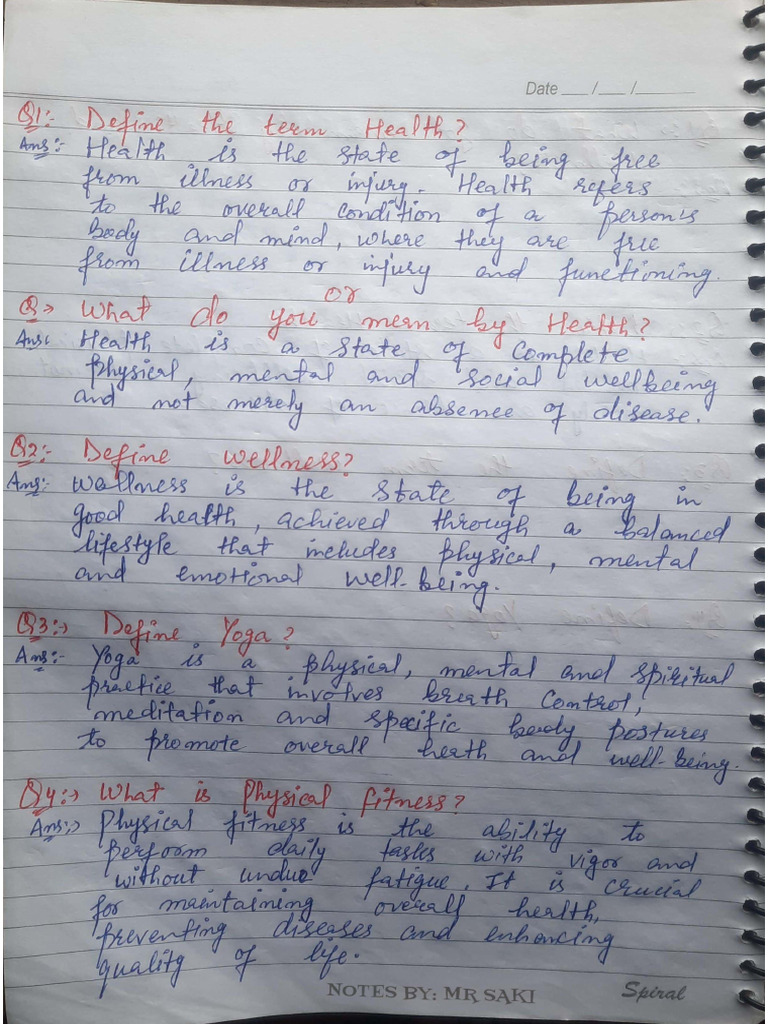 Date ___/___/______
Q1:- Define the term Health?
Ans:- Health is the state of being free
from illness or injury. Health refers
to the overall condition of a person's
body and mind, where they are free
from illness or injury and functioning.
or
Q → What do you mean by Health?
Ans: Health is a state of complete
physical, mental and social wellbeing
and not merely an absence of disease.
Q2:- Define wellness?
Ans:- Wellness is the state of being in
good health, achieved through a balanced
lifestyle that includes physical, mental
and emotional well-being.
Q3:→ Define Yoga?
Ans:- Yoga is a physical, mental and spiritual
practice that involves breath control,
meditation and specific body postures
to promote overall heath and well-being.
Q4:→ What is Physical fitness?
Ans:→ Physical fitness is the ability to
perform daily tasks with vigor and
without undue fatigue. It is crucial
for maintaining overall health,
preventing diseases and enhancing
quality of life.
NOTES BY: MR SAKI
Spiral